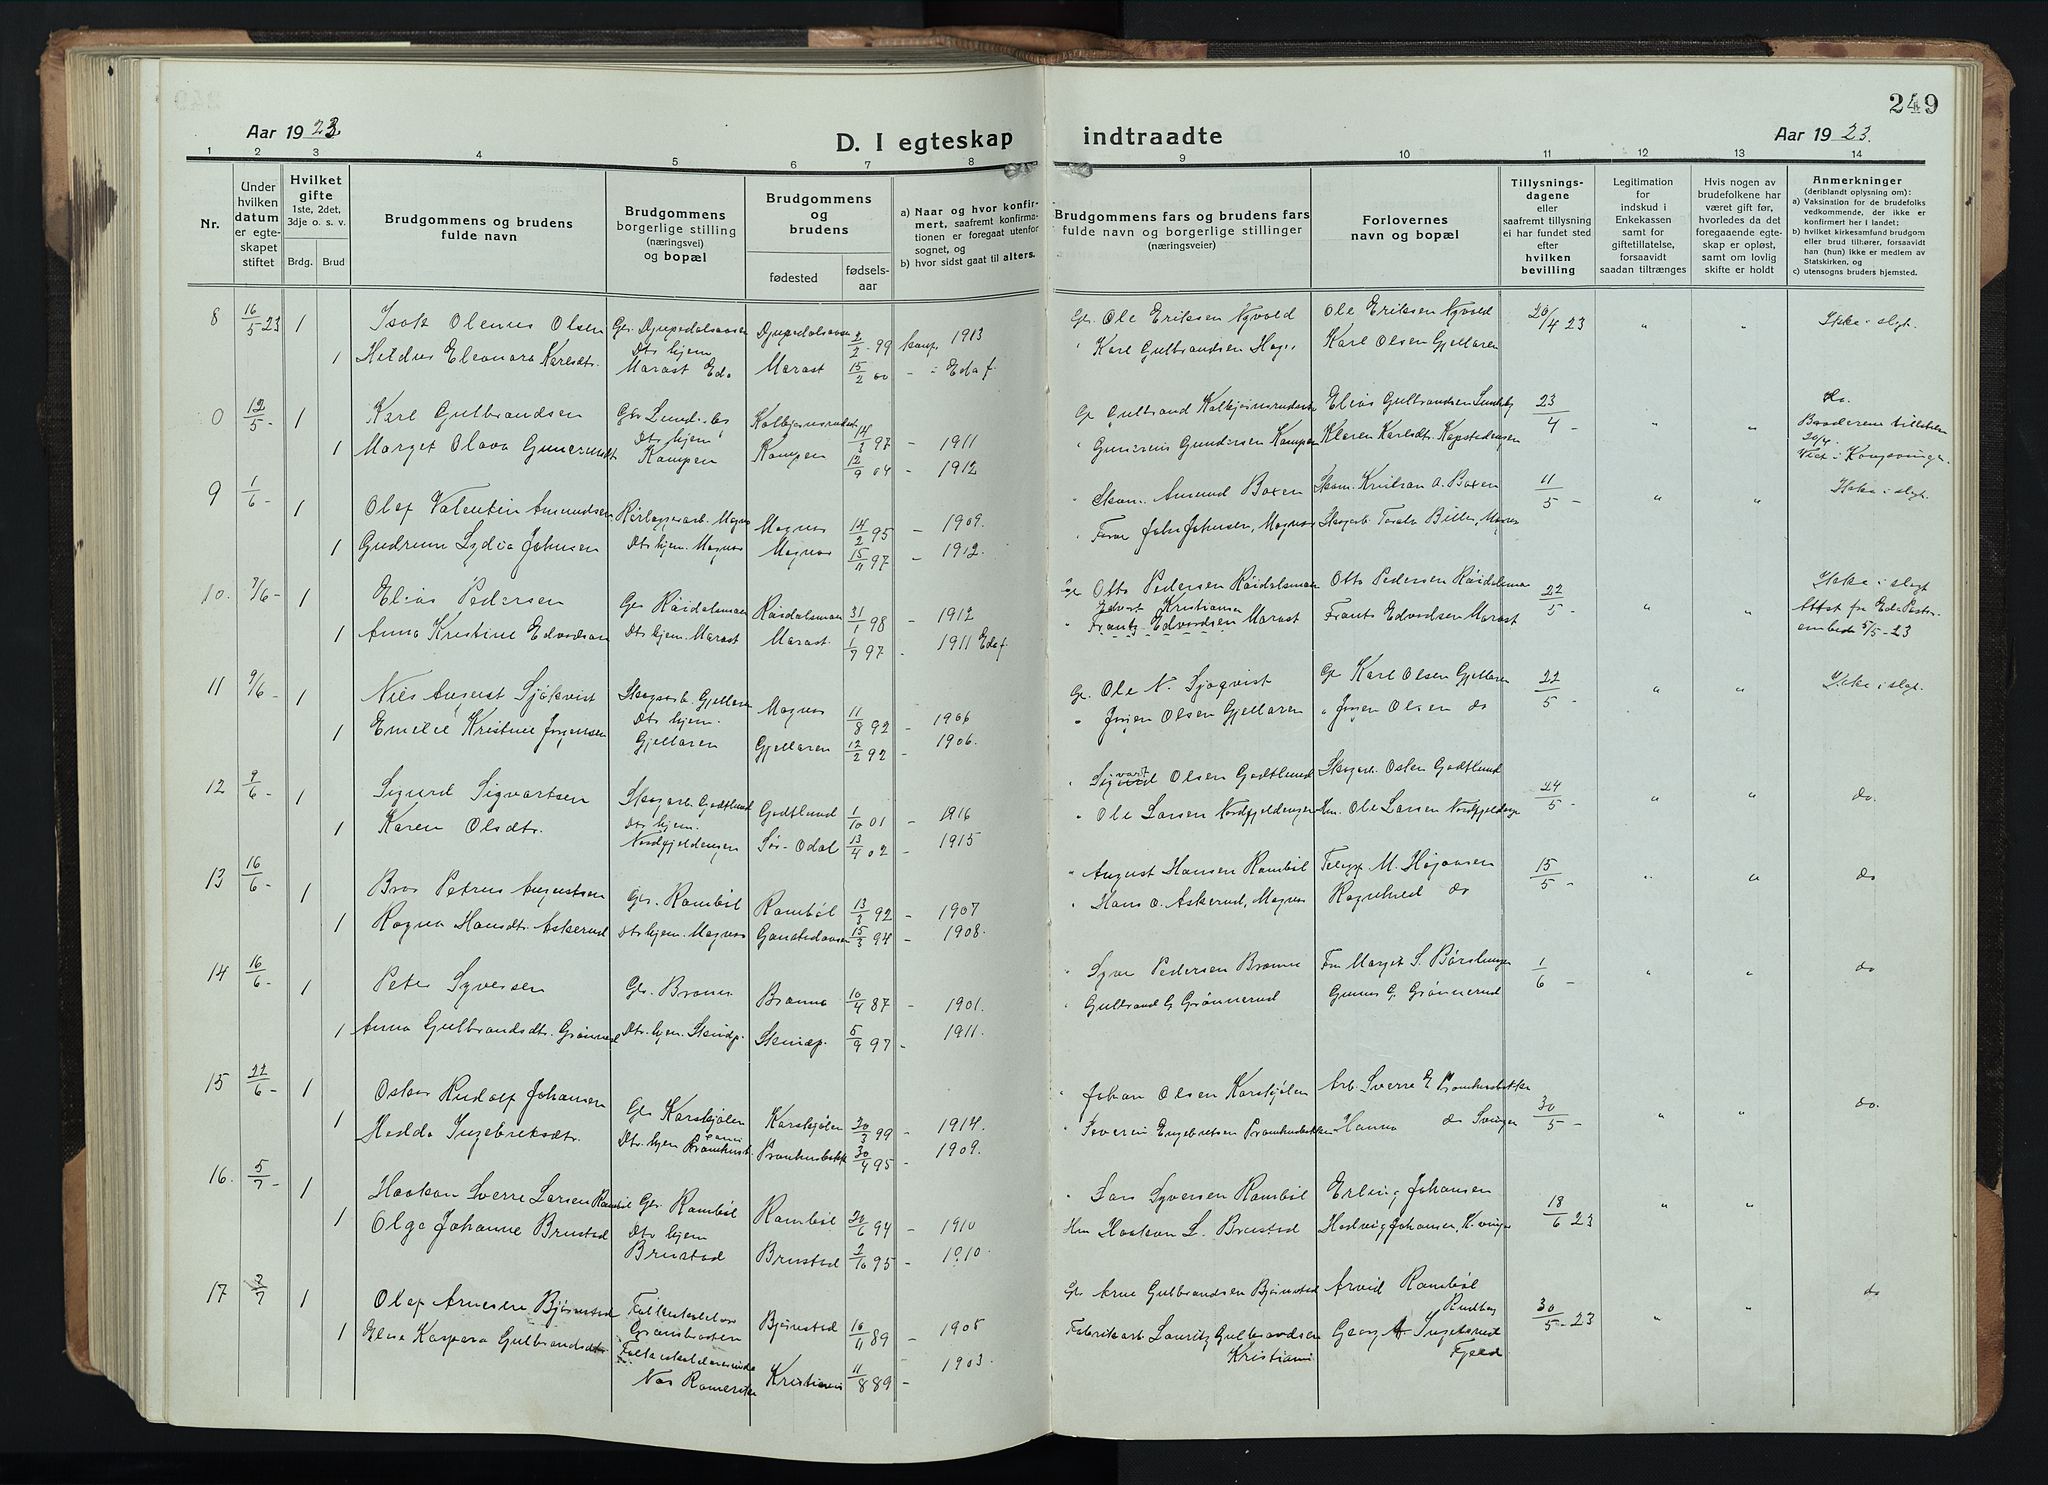 249
Aar 1923.
D. I egteskap
indtraadte
Aar 1923.
1 2 3 4 5 6 7 8 9 10 11 12 13 14
Nr.
Under hvilken datum er egteskapet stiftet
Hvilket gifte 1ste, 2det, 3dje o. s. v.
Brdg. Brud
Brudgommens og brudens fulde navn
Brudgommens borgerlige stilling (næringsvei) og bopæl
Brudgommens og brudens
fødested
fødselsaar
a) Naar og hvor konfirmert, saafremt konfirmationen er foregaat utenfor sognet, og
b) hvor sidst gaat til alters.
Brudgommens fars og brudens fars fulde navn og borgerlige stillinger (næringsveier)
Forlovernes navn og bopæl
Tillysningsdagene eller saafremt tillysning ei har fundet sted efter hvilken bevilling
Legitimation for indskud i Enkekassen samt for giftetillatelse, forsaavidt saadan tiltrænges
Hvis nogen av brudefolkene har været gift før, hvorledes da det foregaaende egteskap er opløst, samt om lovlig skifte er holdt
Anmerkninger (deriblandt oplysning om):
a) Vaksination for de brudefolks vedkommende, der ikke er konfirmert her i landet;
b) hvilket kirkesamfund brudgom eller brud tilhører, forsaavidt han (hun) ikke er medlem av Statskirken, og
c) utensogns bruders hjemsted.
8 16/5-23 1 Isak Olenus Olsen Gbr. Djupedalsaasen Djupedalsaasen 2/2 99 konf. 1913 Gb. Ole Eriksen Nyvold Ole Eriksen Nyvold 20/4 23 " " Ikke i slgt.
1 Hildur Eleonora Karlsdt. Dts hjem Marast Eda Marast 15/2 00 - i Eda f. " Karl Gulbrandsen Karl Olsen Gjellaren
0 12/5- 1 Karl Gulbrandsen Gbr. Kolbjørnsrudst 14/3 97 - 1911 Gb. Gulbrand Elias Gulbrandsen 23/4 - do.
1 Marget Olava Dts hjem Kampen Kampen 12/9 04 - 1912 " Gundersen Kampen Karlsdt. 20/4 Viet i Kongsvinge.
9 1/6- 1 Olaf Valentin Amundsen Magnor Magnor 14/2 95 - 1909. " Skom. Amund Boxen Skom. Kristian A. Boxen 11/5 - " " Ikke i slgt.
1 Gudrun Lydia Johnsen Dts hjem. Magnor Magnor 15/11 97 - 1912. " John Johnsen, Magnor
10. 7/6- 1 Elias Pedersen Gbr Røidalsmoen Røidalsmoen 31/1 98 - 1912 Gb Otto Pedersen Røidalsmoen Otto Pedersen Røidalsmoen 22/5 - " " Ikke i slgt
1 Anna Kristine Edvardsen Dts hjem. Marast Marast. 1/7 97 - 1911 Eda f. Edvart Kristiansen " Frantz Edvardsen Marast Frants Edvardsen Marast Attest fra Eda Pastorembede 5/5-23
11 9/6- 1 Nils August Sjökvist Skogsarb. Gjellaren Magnor 11/8 92 - 1906 Gb. Ole N. Sjøqvist Gb Karl Olsen Gjellaren 22/5 - " " Ikke i slgt.
1 Emelie Kristine Jørgensen Dts hjem. Gjellaren Gjellaren 12/2 92 - 1906. " Jørgen Olsen Gjellaren " Jørgen Olsen do
12 9/6- 1 Sigurd Sigvartsen Skogarb. Godtlund Godtlund 1/10 01 - 1916 " Sigvart Olsen Godtlund Skogarb. Osten Godtlund 24/5 - " " do.
1 Karen Olsdt. Dts hjem. Nordfjeldengen Sør-Odal 13/4 02 - 1915 " Ole Larsen Nordfjeldengen Hm. Ole Larsen Nordfjeldengen
13 16/6- 1 Petrus Augustsen Gbr. Rambøl Rambøl 13/3 92 - 1907 " August Hansen Rambøl M. Hågensen 15/5 - " " do
1 Ragna Hansdt. Askerud Dts hjem. Magnor 15/3 94 - 1908. " Hans O. Askerud, Magnor Ragnhild do
14 16/6- 1 Peter Syversen Gbr. Branna 10/4 87 - 1901. " Syver Pedersen Fru Marget S. 1/6 - " " do
1 Anna Gulbrandsdt. Grønnerud Dts. hjem. 5/9 97 - 1911. " Gulbrand G. Grønnerud Gunnar G. Grønnerud
15 22/6- 1 Oskar Rudolf Johansen Gbr Karskjølen Karskjølen 20/3 99 - 1914. " Johan Olsen Karskjølen Arb. Sverre E. Pramhusbakken 30/5 - " " do.
1 Hedda Ingebriktsdt. Dts. hjem Pramhusbakk 30/4 95 - 1909. " Severin Engebretsen Pramhusbakken Hanna do
16. 5/7- 1 Haakon Sverre Larsen Rambøl Gbr. Rambøl Rambøl 20/6 94 - 1910 " Lars Syversen Rambøl Erling Johansen 18/6 23 " "
1 Olga Johanne Brustad Dts hjem Brustad Brustad 2/10 95 - 1910. Hm Haakon L. Brustad Hedvig Johansen, K.vinger
17 7/7 1 Olaf Arnesen Bjørnstad Bjørnstad 16/11 89 - 1905 Gb. Arne Gulbrandsen Bjørnstad Arvid Rambøl 30/5-23 " " do
1 Kaspara Gulbrandsdt. Nes Romerike Kristiania 11/8 89 - 1903. Fabrikarb. Lauritz Gulbrandsen Kristiania Georg A. Fjeld